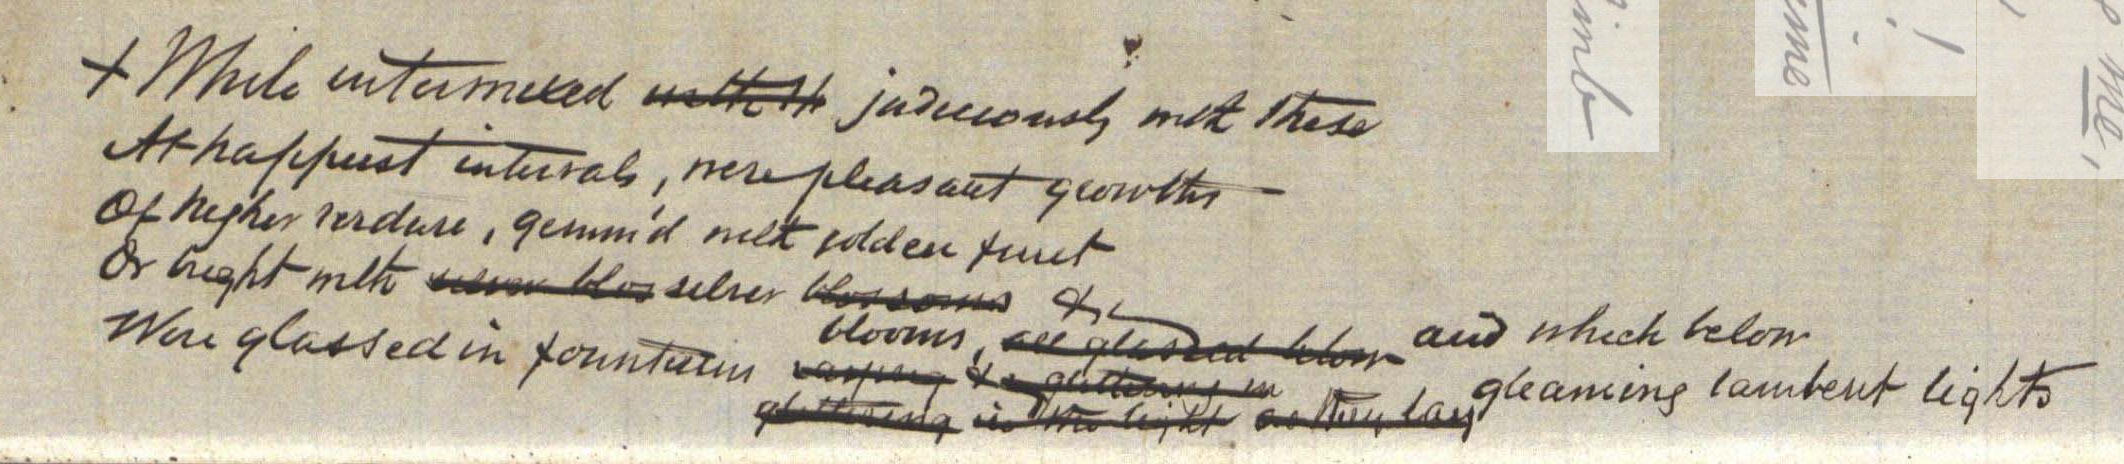 + While intermixed ~~with th~~ judiciously with these
At happiest intervals, were pleasant growths
Of higher verdure, gemm'd with golden fruit
Or bright with ~~silver blos~~ silver ~~blossoms~~ &
blooms, ~~all glassed below~~ and which below
Were glassed in fountains ~~& glittering in~~ gleaming lambent lights
~~glittering in the light as they lay~~
imb
!
me
me,